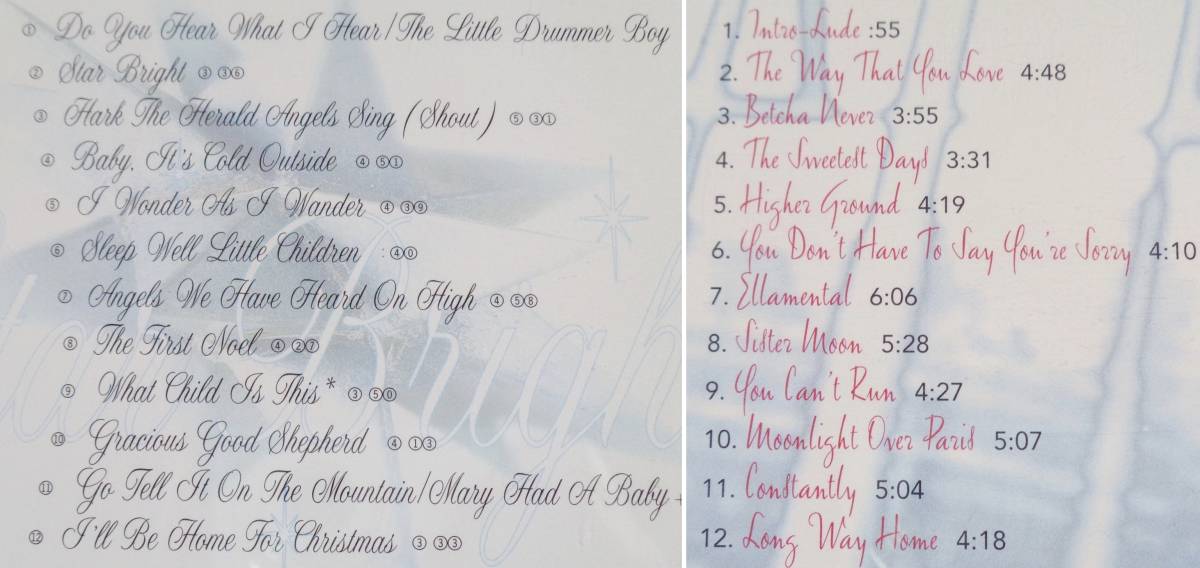 ① Do You Hear What I Hear/The Little Drummer Boy
② Star Bright ③ ③⑥
③ Hark The Herald Angels Sing (Shout) ⑤ ③①
④ Baby, It's Cold Outside ④ ⑤①
⑤ I Wonder As I Wander ④ ③⑨
⑥ Sleep Well Little Children : ④⓪
⑦ Angels We Have Heard On High ④ ⑤⑧
⑧ The First Noel ④ ②⑦
⑨ What Child Is This* ③ ⑤⓪
⑩ Gracious Good Shepherd ④ ①③
⑪ Go Tell It On The Mountain/Mary Had A Baby +
⑫ I'll Be Home For Christmas ③ ③③
1. Intro-Lude :55
2. The Way That You Love 4:48
3. Betcha Never 3:55
4. The Sweetest Days 3:31
5. Higher Ground 4:19
6. You Don't Have To Say You're Sorry 4:10
7. Ellamental 6:06
8. Sister Moon 5:28
9. You Can't Run 4:27
10. Moonlight Over Paris 5:07
11. Constantly 5:04
12. Long Way Home 4:18